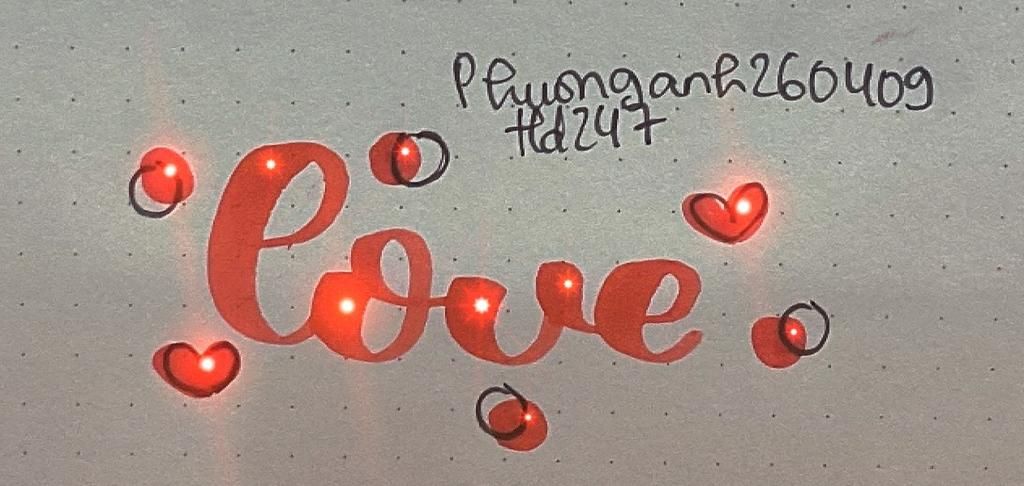 Phuonganh260409
Hd247
love